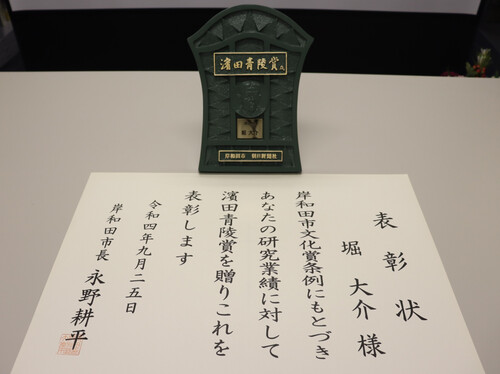 濱田青陵賞
岸和田市 朝日新聞社
表彰状
堀 大介 様
岸和田市文化賞条例にもとづき
あなたの研究業績に対して
濱田青陵賞を贈りこれを
表彰します
令和四年九月二五日
岸和田市長 永野耕平